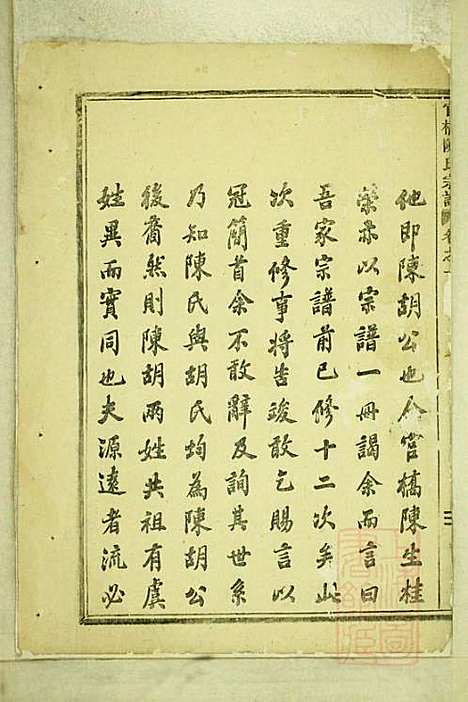 官橋陳氏宗譜
卷之一
他即陳胡公也今官橋陳生桂
榮亦以宗譜一冊謁余而言曰
吾家宗譜前已修十二次矣此
次重修事將告竣敢乞賜言以
冠簡首余不敢辭及詢其世系
乃知陳氏與胡氏均為陳胡公
後裔然則陳胡兩姓共祖有虞
姓異而實同也夫源遠者流必